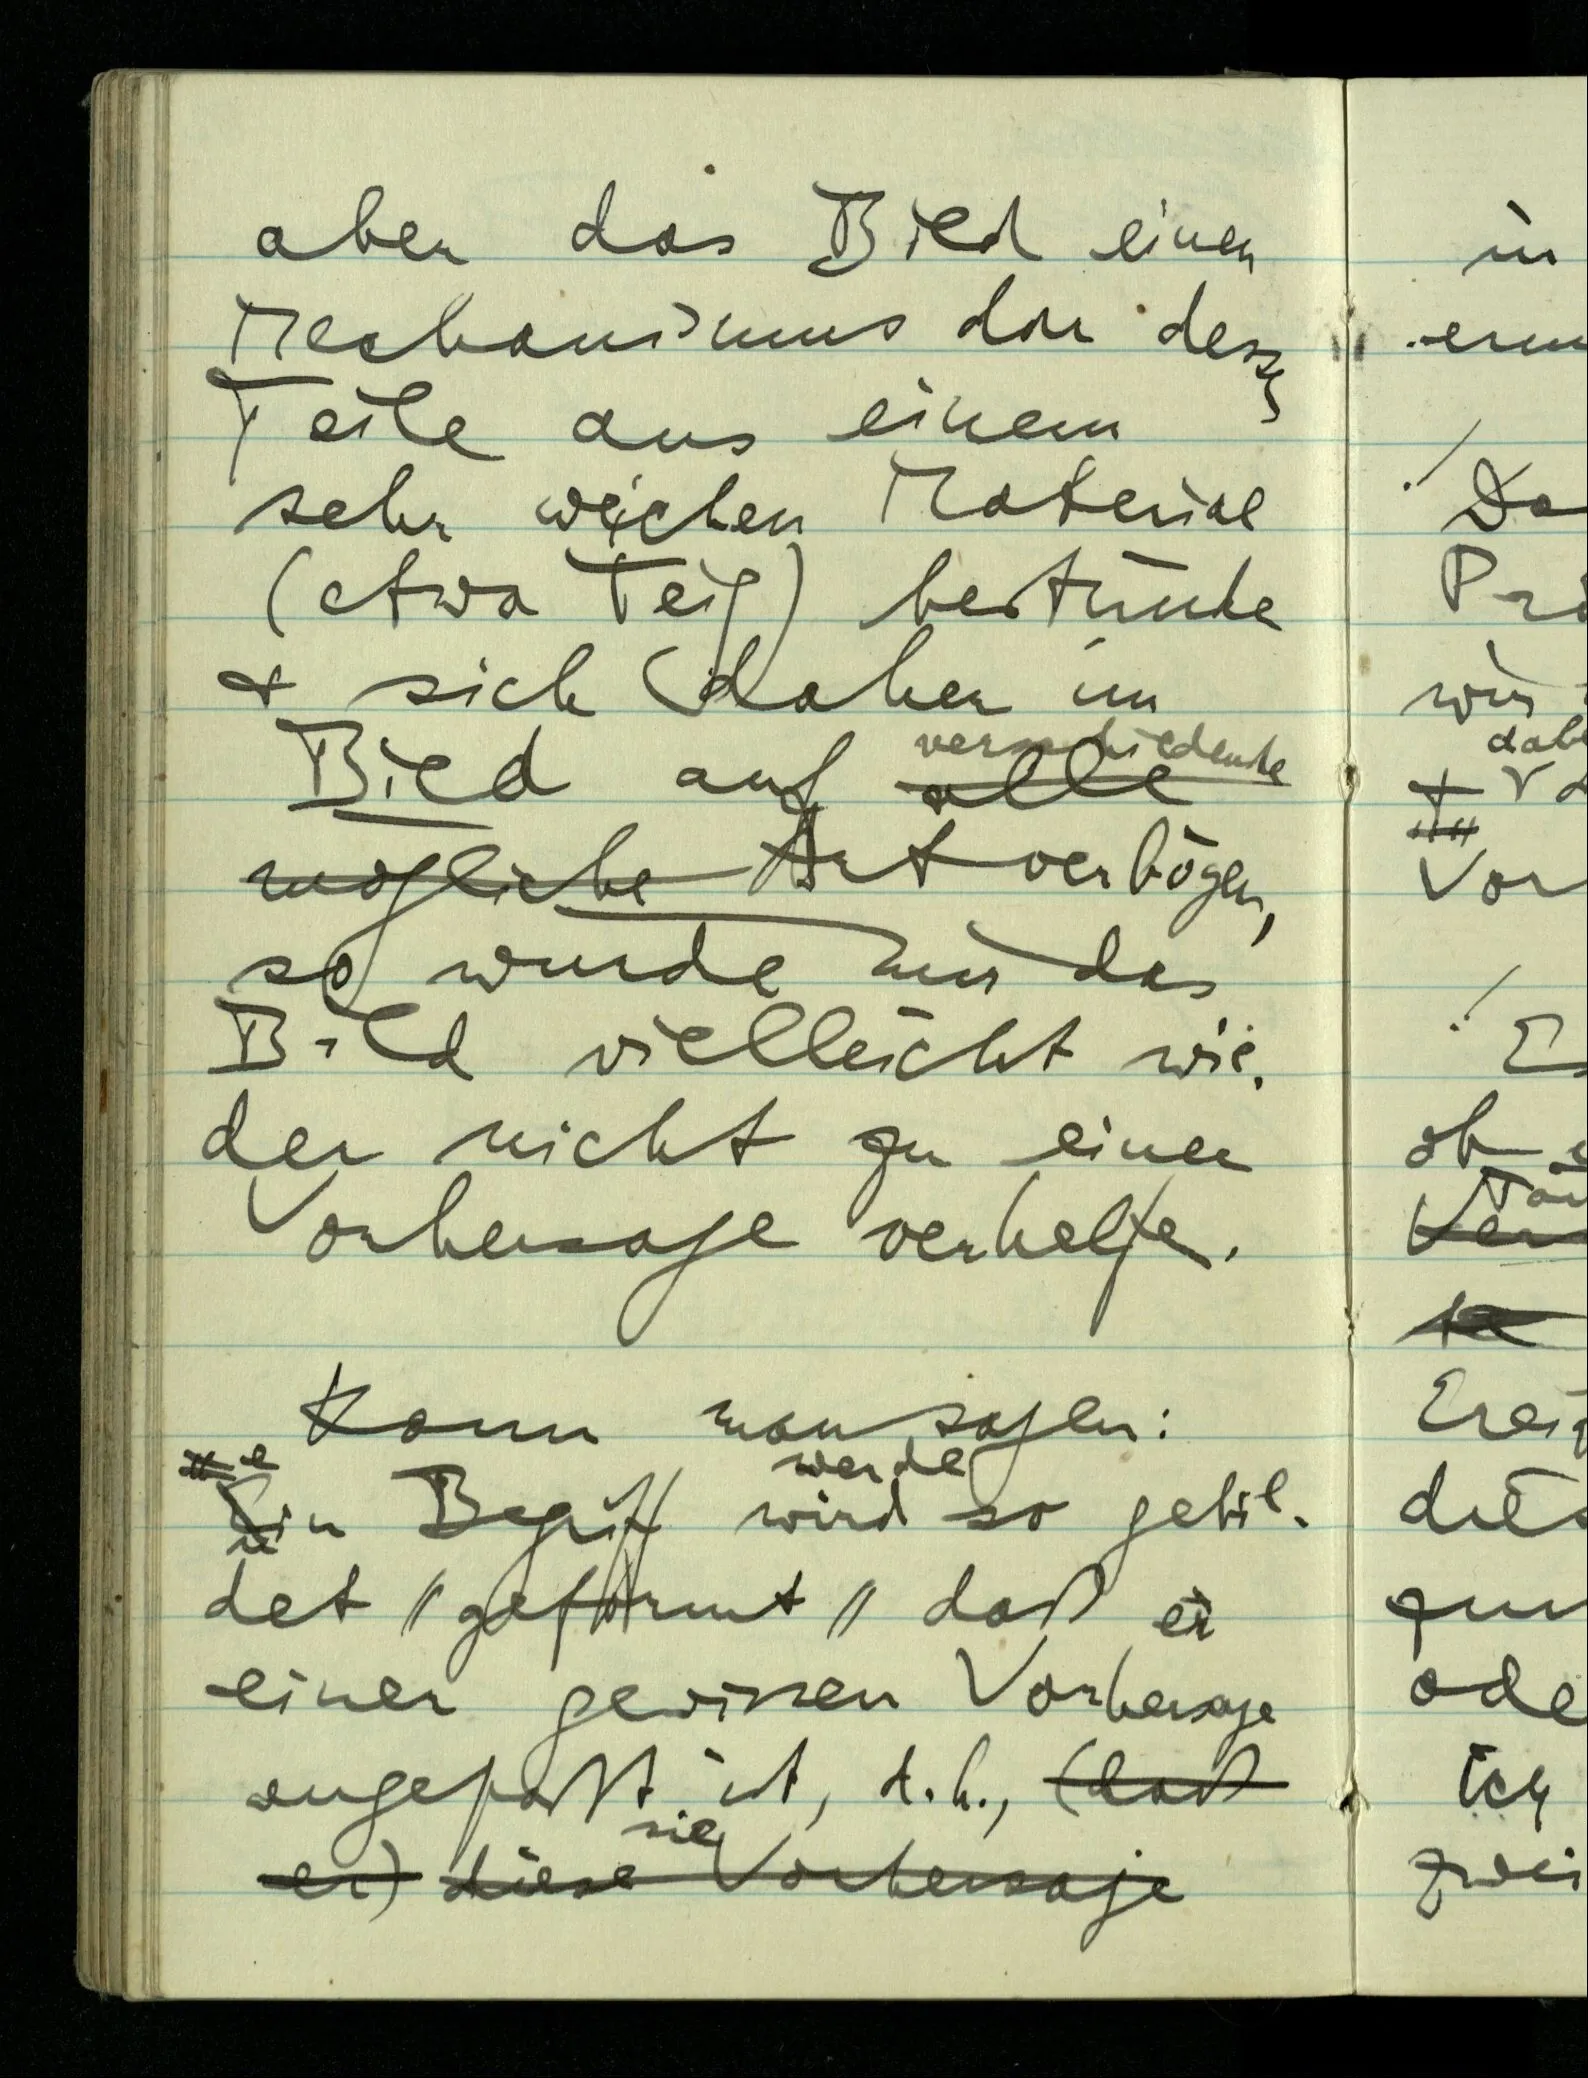 aber das Bild einen
Mechanismus dar dessen
Teile aus einem
sehr weichen Material
(etwa Teig) bestünde
& sich daher im
verschiedenste
Bild auf alle
mögliche Art verbögen,
so würde mir das
Bild vielleicht wie-
der nicht zu einer
Vorhersage verhelfen.
Kann man sagen:
werde
Ein Begriff wird so gebil-
det, "geformt" daß er
einer gewissen Vorhersage
angepaßt ist, d.h., (daß
sie
er) diese Vorhersage
in
Da
wir
dabe
Vor
Es
ob
Ereig
dies
zun
ode
ich
zwei